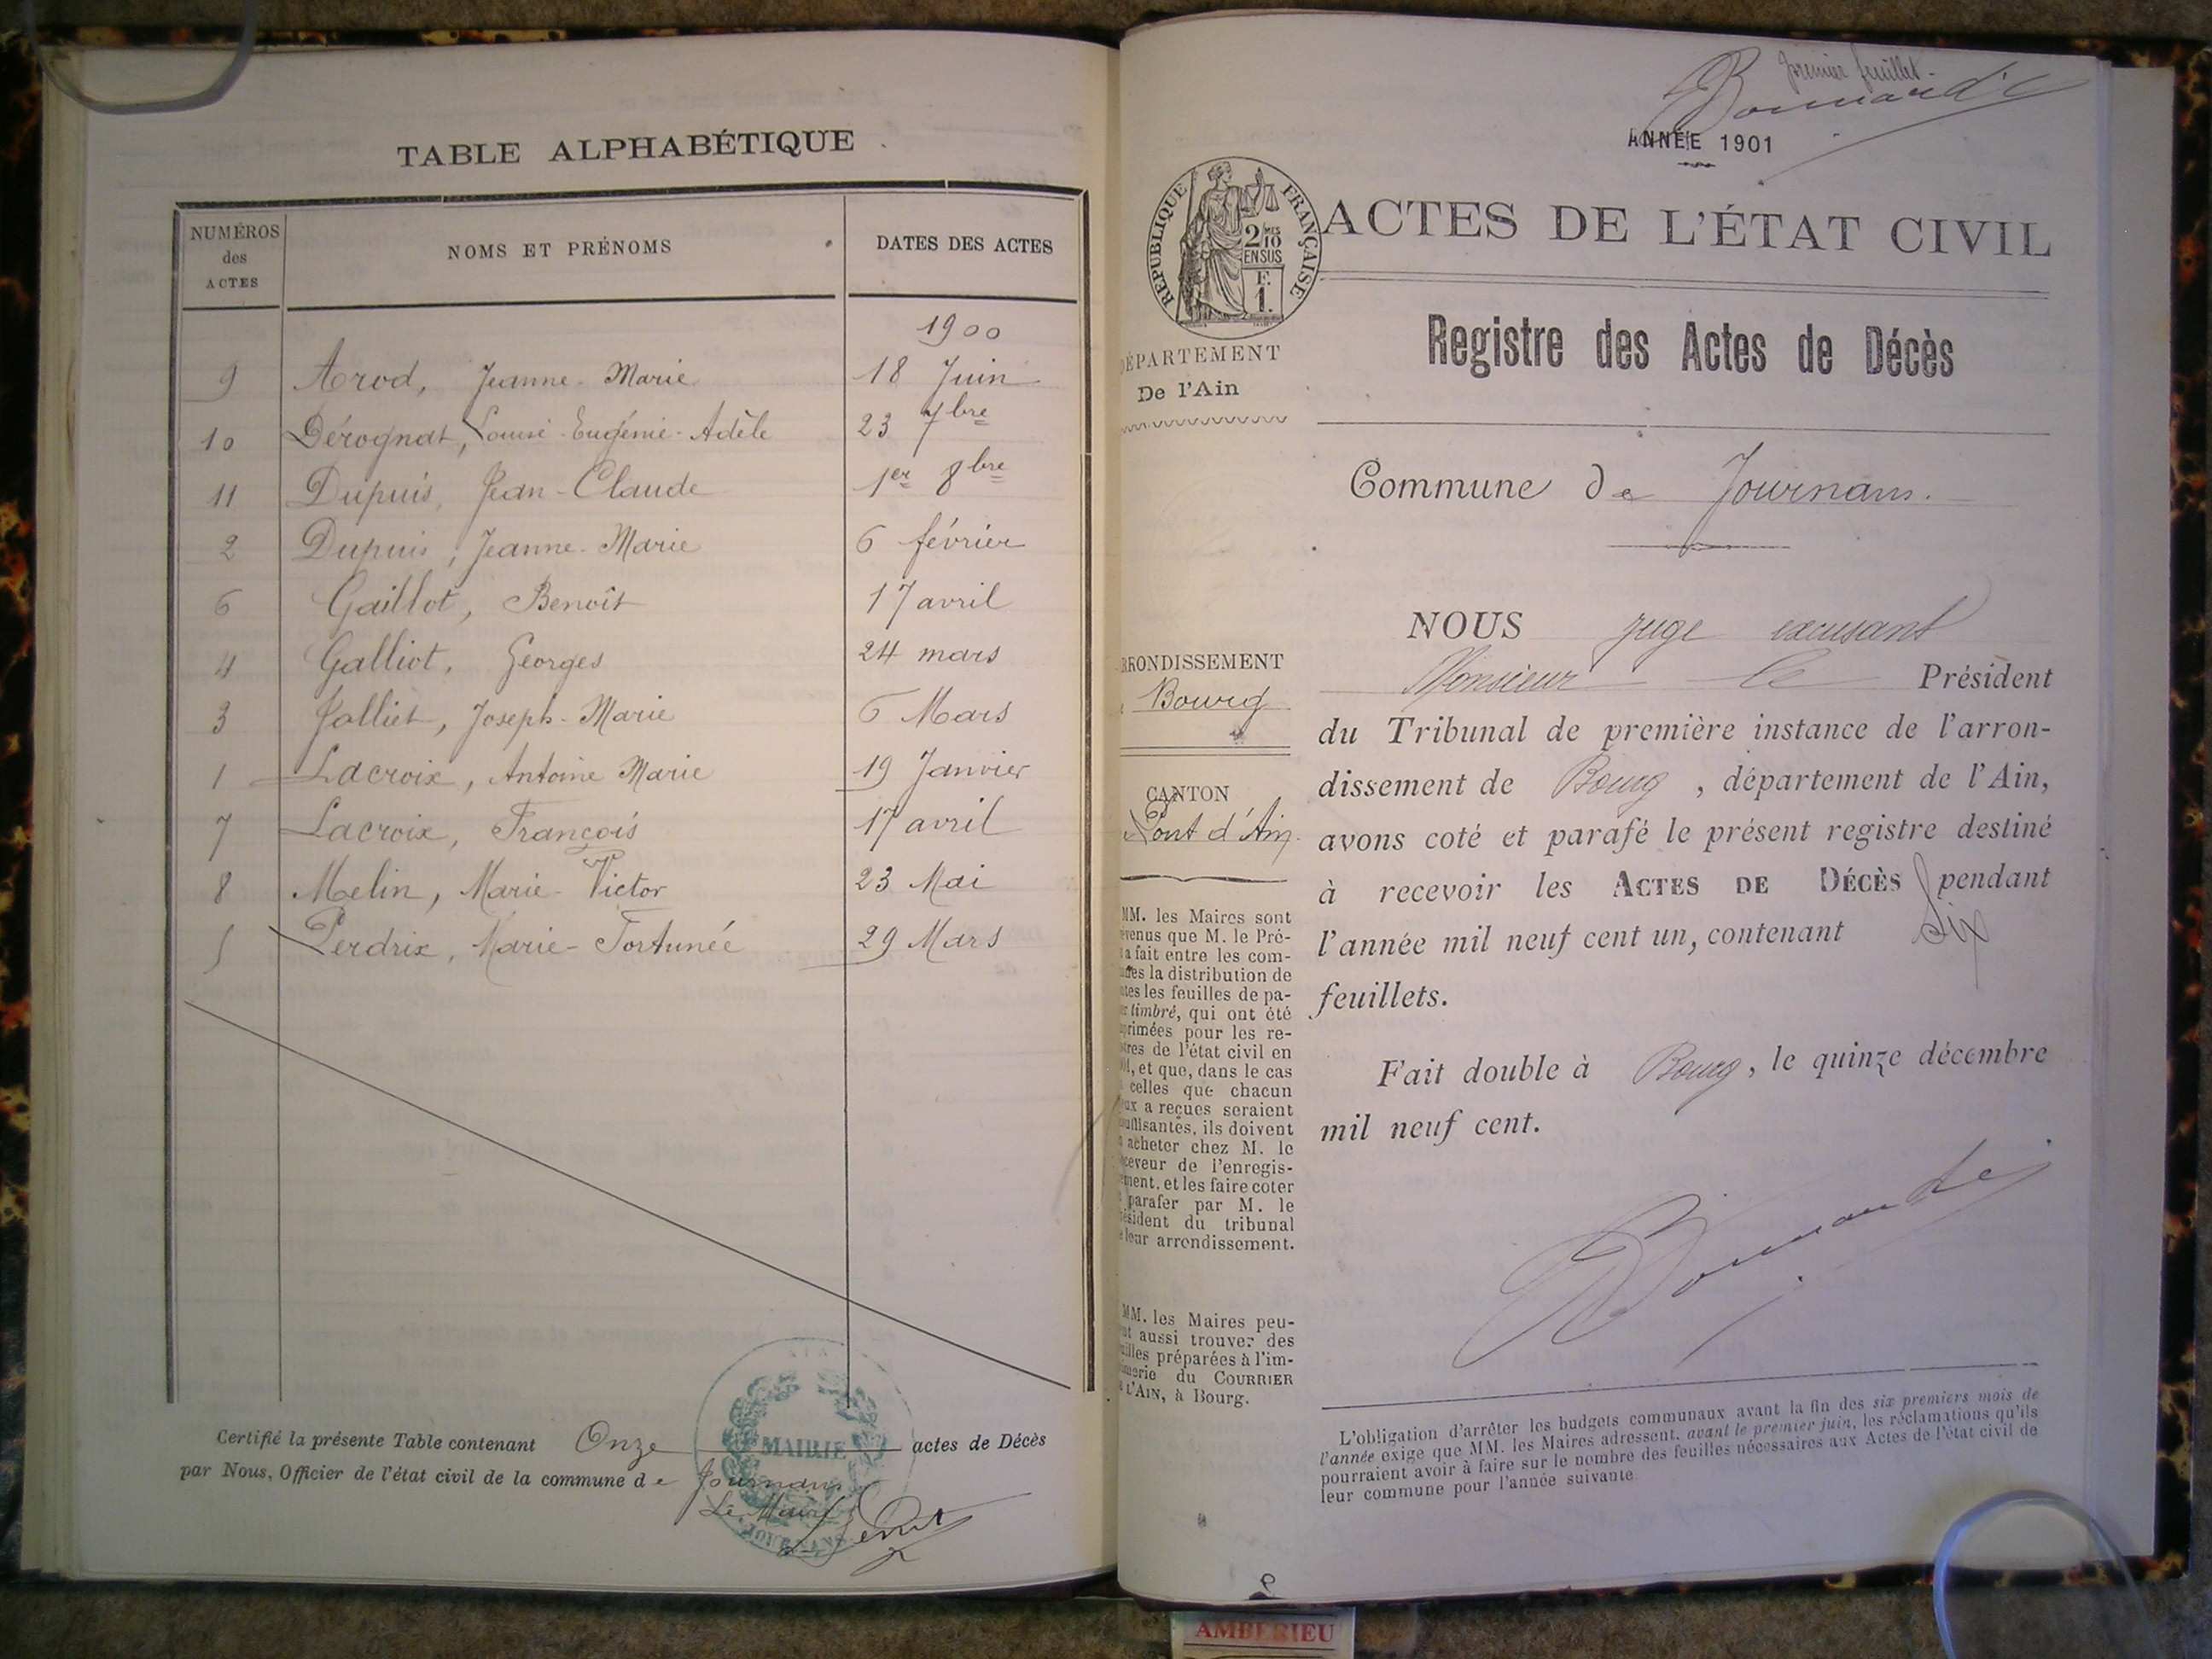 TABLE ALPHABÉTIQUE
NUMÉROS
des
ACTES
NOMS ET PRÉNOMS
DATES DES ACTES
1900
9 Arod, Jeanne-Marie 18 Juin
10 Dérognat, Louise-Eugénie-Adèle 23 7bre
11 Dupuis, Jean-Claude 1er 8bre
2 Dupuis, Jeanne-Marie 6 février
6 Gaillot, Benoît 17 avril
4 Galliot, Georges 24 mars
3 Jolliet, Joseph-Marie 6 Mars
1 Lacroix, Antoine Marie 19 Janvier
7 Lacroix, François 17 avril
8 Melin, Marie-Victor 23 Mai
5 Perdrix, Marie-Fortunée 29 Mars
Certifié la présente Table contenant Onze actes de Décès
par Nous, Officier de l'état civil de la commune de Journans
Le Maire
MAIRIE
JOURNANS
premier feuillet
ANNÉE 1901
RÉPUBLIQUE FRANÇAISE
2/10
EN SUS
F.
1.
ACTES DE L'ÉTAT CIVIL
Registre des Actes de Décès
DÉPARTEMENT
De l'Ain
Commune de Journans.
NOUS juge excusant
Monsieur le Président
du Tribunal de première instance de l'arron-
dissement de Bourg, département de l'Ain,
avons coté et parafé le présent registre destiné
à recevoir les ACTES DE DÉCÈS pendant
l'année mil neuf cent un, contenant six
feuillets.
Fait double à Bourg, le quinze décembre
mil neuf cent.
RRONDISSEMENT
Bourg
CANTON
Pont d'Ain
MM. les Maires sont
évenus que M. le Pré-
a fait entre les com-
unes la distribution de
utes les feuilles de pa-
er timbré, qui ont été
primées pour les re-
stres de l'état civil en
01, et que, dans le cas
celles que chacun
eux a reçues seraient
suffisantes, ils doivent
acheter chez M. le
ceveur de l'enregis-
ement, et les faire coter
parafer par M. le
ésident du tribunal
e leur arrondissement.
MM. les Maires peu-
nt aussi trouver des
uilles préparées à l'im-
merie du COURRIER
L'AIN, à Bourg.
L'obligation d'arrêter les budgets communaux avant la fin des six premiers mois de
l'année exige que MM. les Maires adressent, avant le premier juin, les réclamations qu'ils
pourraient avoir à faire sur le nombre des feuilles nécessaires aux Actes de l'état civil de
leur commune pour l'année suivante.
AMBERIEU